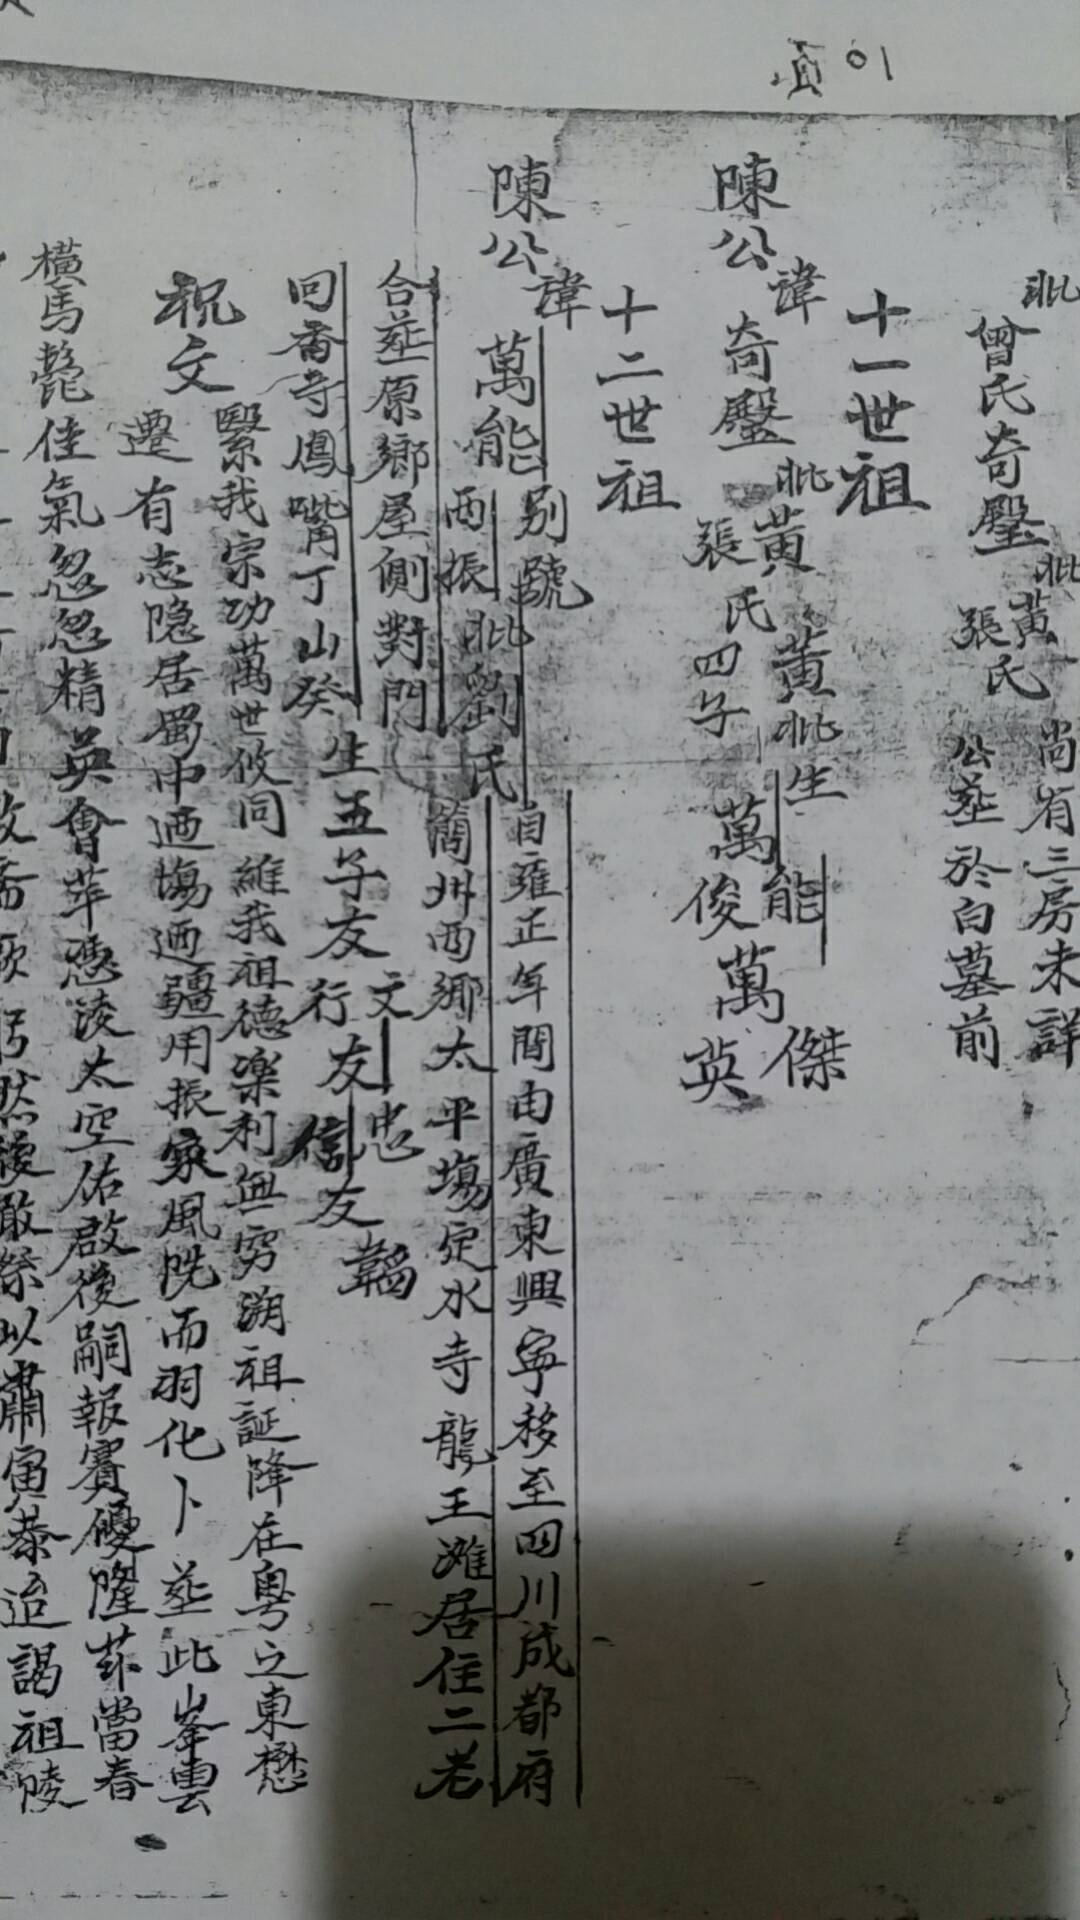 頁01
妣曾氏奇璧妣黃氏 張氏 尚有三房未詳
公葬於白墓前
十一世祖
陳公諱奇璧妣黃 張氏四子 黃妣生 萬能 萬傑
萬俊 萬英
十二世祖
陳公諱萬能別號西振妣劉氏
自雍正年間由廣東興寧移至四川成都府
簡州西鄉太平塲定水寺龍王灘居住二老
合葬原鄉屋側對門
回香寺鳳嘴丁山癸生五子友文友忠
友行友信友韜
祝文
緊我宗功萬世攸同維我祖德樂利無窮溯祖誕降在粵之東懋
遷有志隐居蜀中迺塲迺疆用振家風旣而羽化卜葬此峯雲
橫馬鬛佳氣忽忽精英會萃憑淩太空佑啟後嗣報賽優隆茲當春
然後敢祭以肅寅恭迨謁祖陵